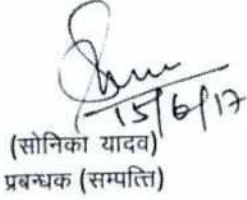 15/6/17
(सोनिका यादव)
प्रबन्धक (सम्पत्ति)